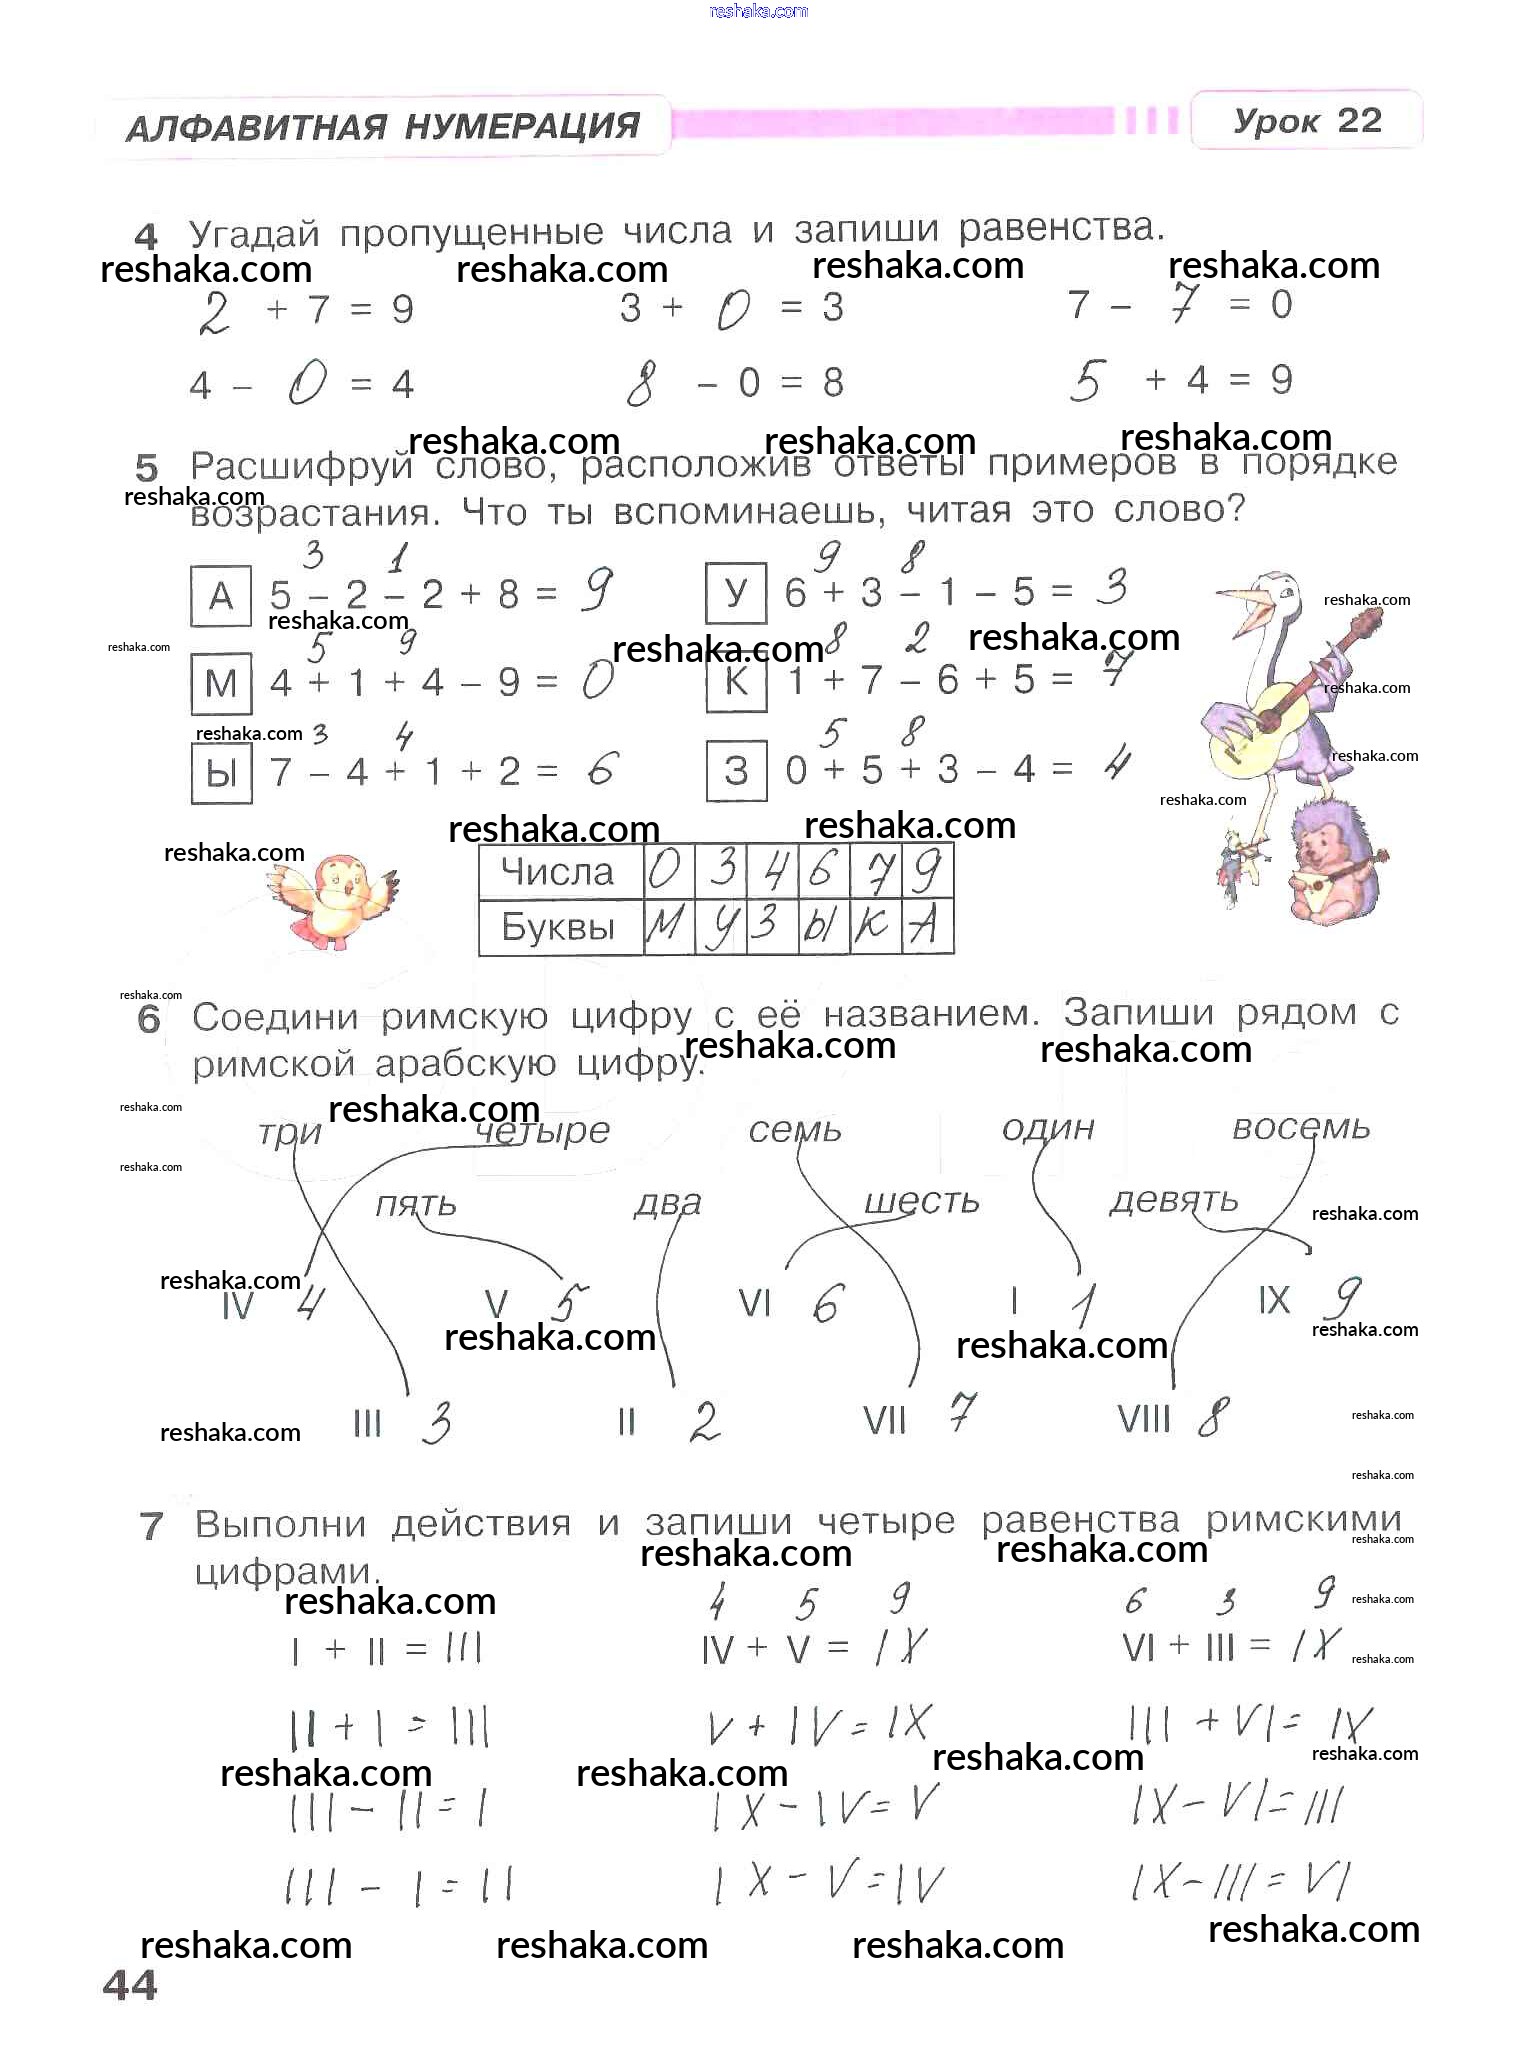 reshaka.com
АЛФАВИТНАЯ НУМЕРАЦИЯ Урок 22
4 Угадай пропущенные числа и запиши равенства.
reshaka.com reshaka.com reshaka.com reshaka.com
2 + 7 = 9 3 + 0 = 3 7 – 7 = 0
4 – 0 = 4 8 – 0 = 8 5 + 4 = 9
reshaka.com reshaka.com reshaka.com
5 Расшифруй слово, расположив ответы примеров в порядке
reshaka.com
возрастания. Что ты вспоминаешь, читая это слово?
3 1 9 8
А 5 – 2 – 2 + 8 = 9 У 6 + 3 – 1 – 5 = 3
reshaka.com reshaka.com
reshaka.com 5 9 reshaka.com 8 2 reshaka.com
М 4 + 1 + 4 – 9 = 0 К 1 + 7 – 6 + 5 = 7
reshaka.com
reshaka.com 3 4 5 8
reshaka.com
Ы 7 – 4 + 1 + 2 = 6 З 0 + 5 + 3 – 4 = 4
reshaka.com
reshaka.com reshaka.com
reshaka.com
Числа 0 3 4 6 7 9
Буквы М У З Ы К А
reshaka.com
6 Соедини римскую цифру с её названием. Запиши рядом с
reshaka.com reshaka.com
римской арабскую цифру.
reshaka.com reshaka.com
три четыре семь один восемь
reshaka.com
пять два шесть девять
reshaka.com
reshaka.com
IV 4 V 5 VI 6 I 1 IX 9
reshaka.com reshaka.com reshaka.com
III 3 II 2 VII 7 VIII 8
reshaka.com reshaka.com
reshaka.com
7 Выполни действия и запиши четыре равенства римскими
reshaka.com reshaka.com reshaka.com
цифрами.
reshaka.com 4 5 9 6 3 9 reshaka.com
I + II = III IV + V = IX VI + III = IX
reshaka.com
II + I = III V + IV = IX III + VI = IX
reshaka.com reshaka.com reshaka.com reshaka.com
III – II = I IX – IV = V IX – VI = III
III – I = II IX – V = IV IX – III = VI
reshaka.com reshaka.com reshaka.com reshaka.com
44